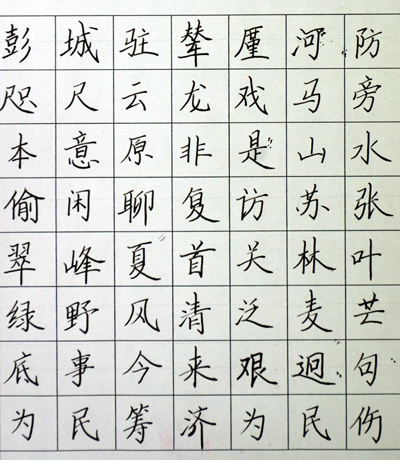 彭城驻辇厪河防
咫尺云龙戏马旁
本意原非是山水
偷闲聊复访苏张
翠峰夏首关林叶
绿野风清泛麦芒
底事今来艰迥句
为民筹济为民伤